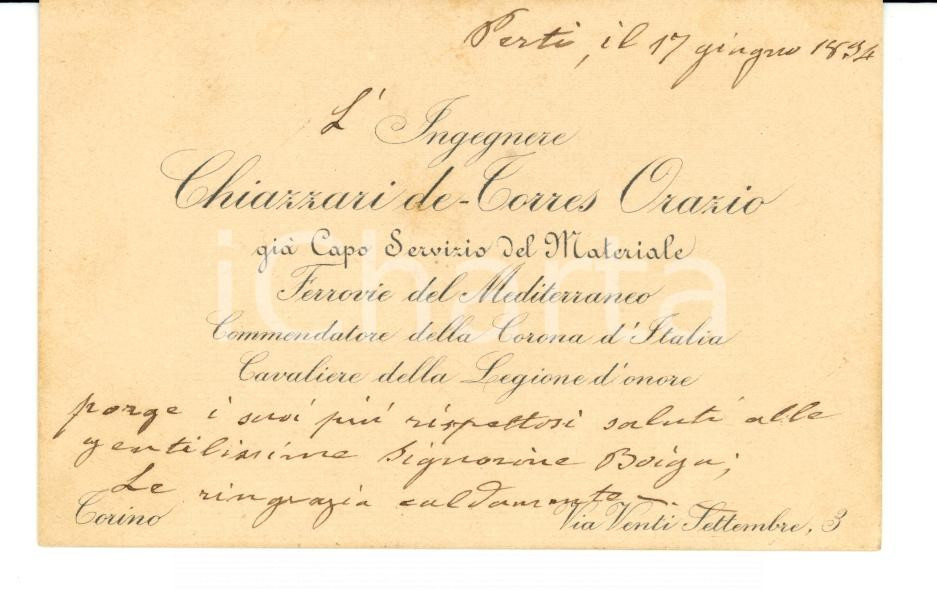 Perti, il 17 giugno 1894
L' Ingegnere
Chiazzari de-Torres Orazio
già Capo Servizio del Materiale
Ferrovie del Mediterraneo
Commendatore della Corona d'Italia
Cavaliere della Legione d'onore
porge i suoi più rispettosi saluti alle
gentilissime Signorine
Le ringrazia caldamente
Torino Via Venti Settembre, 3
iCharta